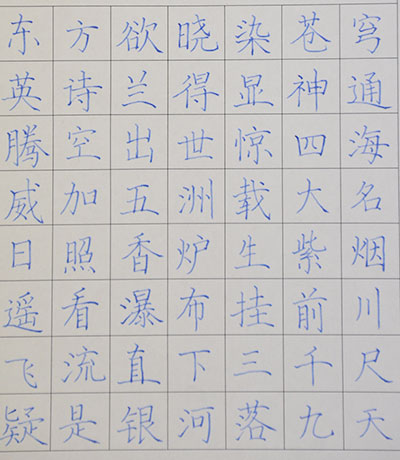 东方欲晓染苍穹
英诗兰得显神通
腾空出世惊四海
威加五洲载大名
日照香炉生紫烟
遥看瀑布挂前川
飞流直下三千尺
疑是银河落九天